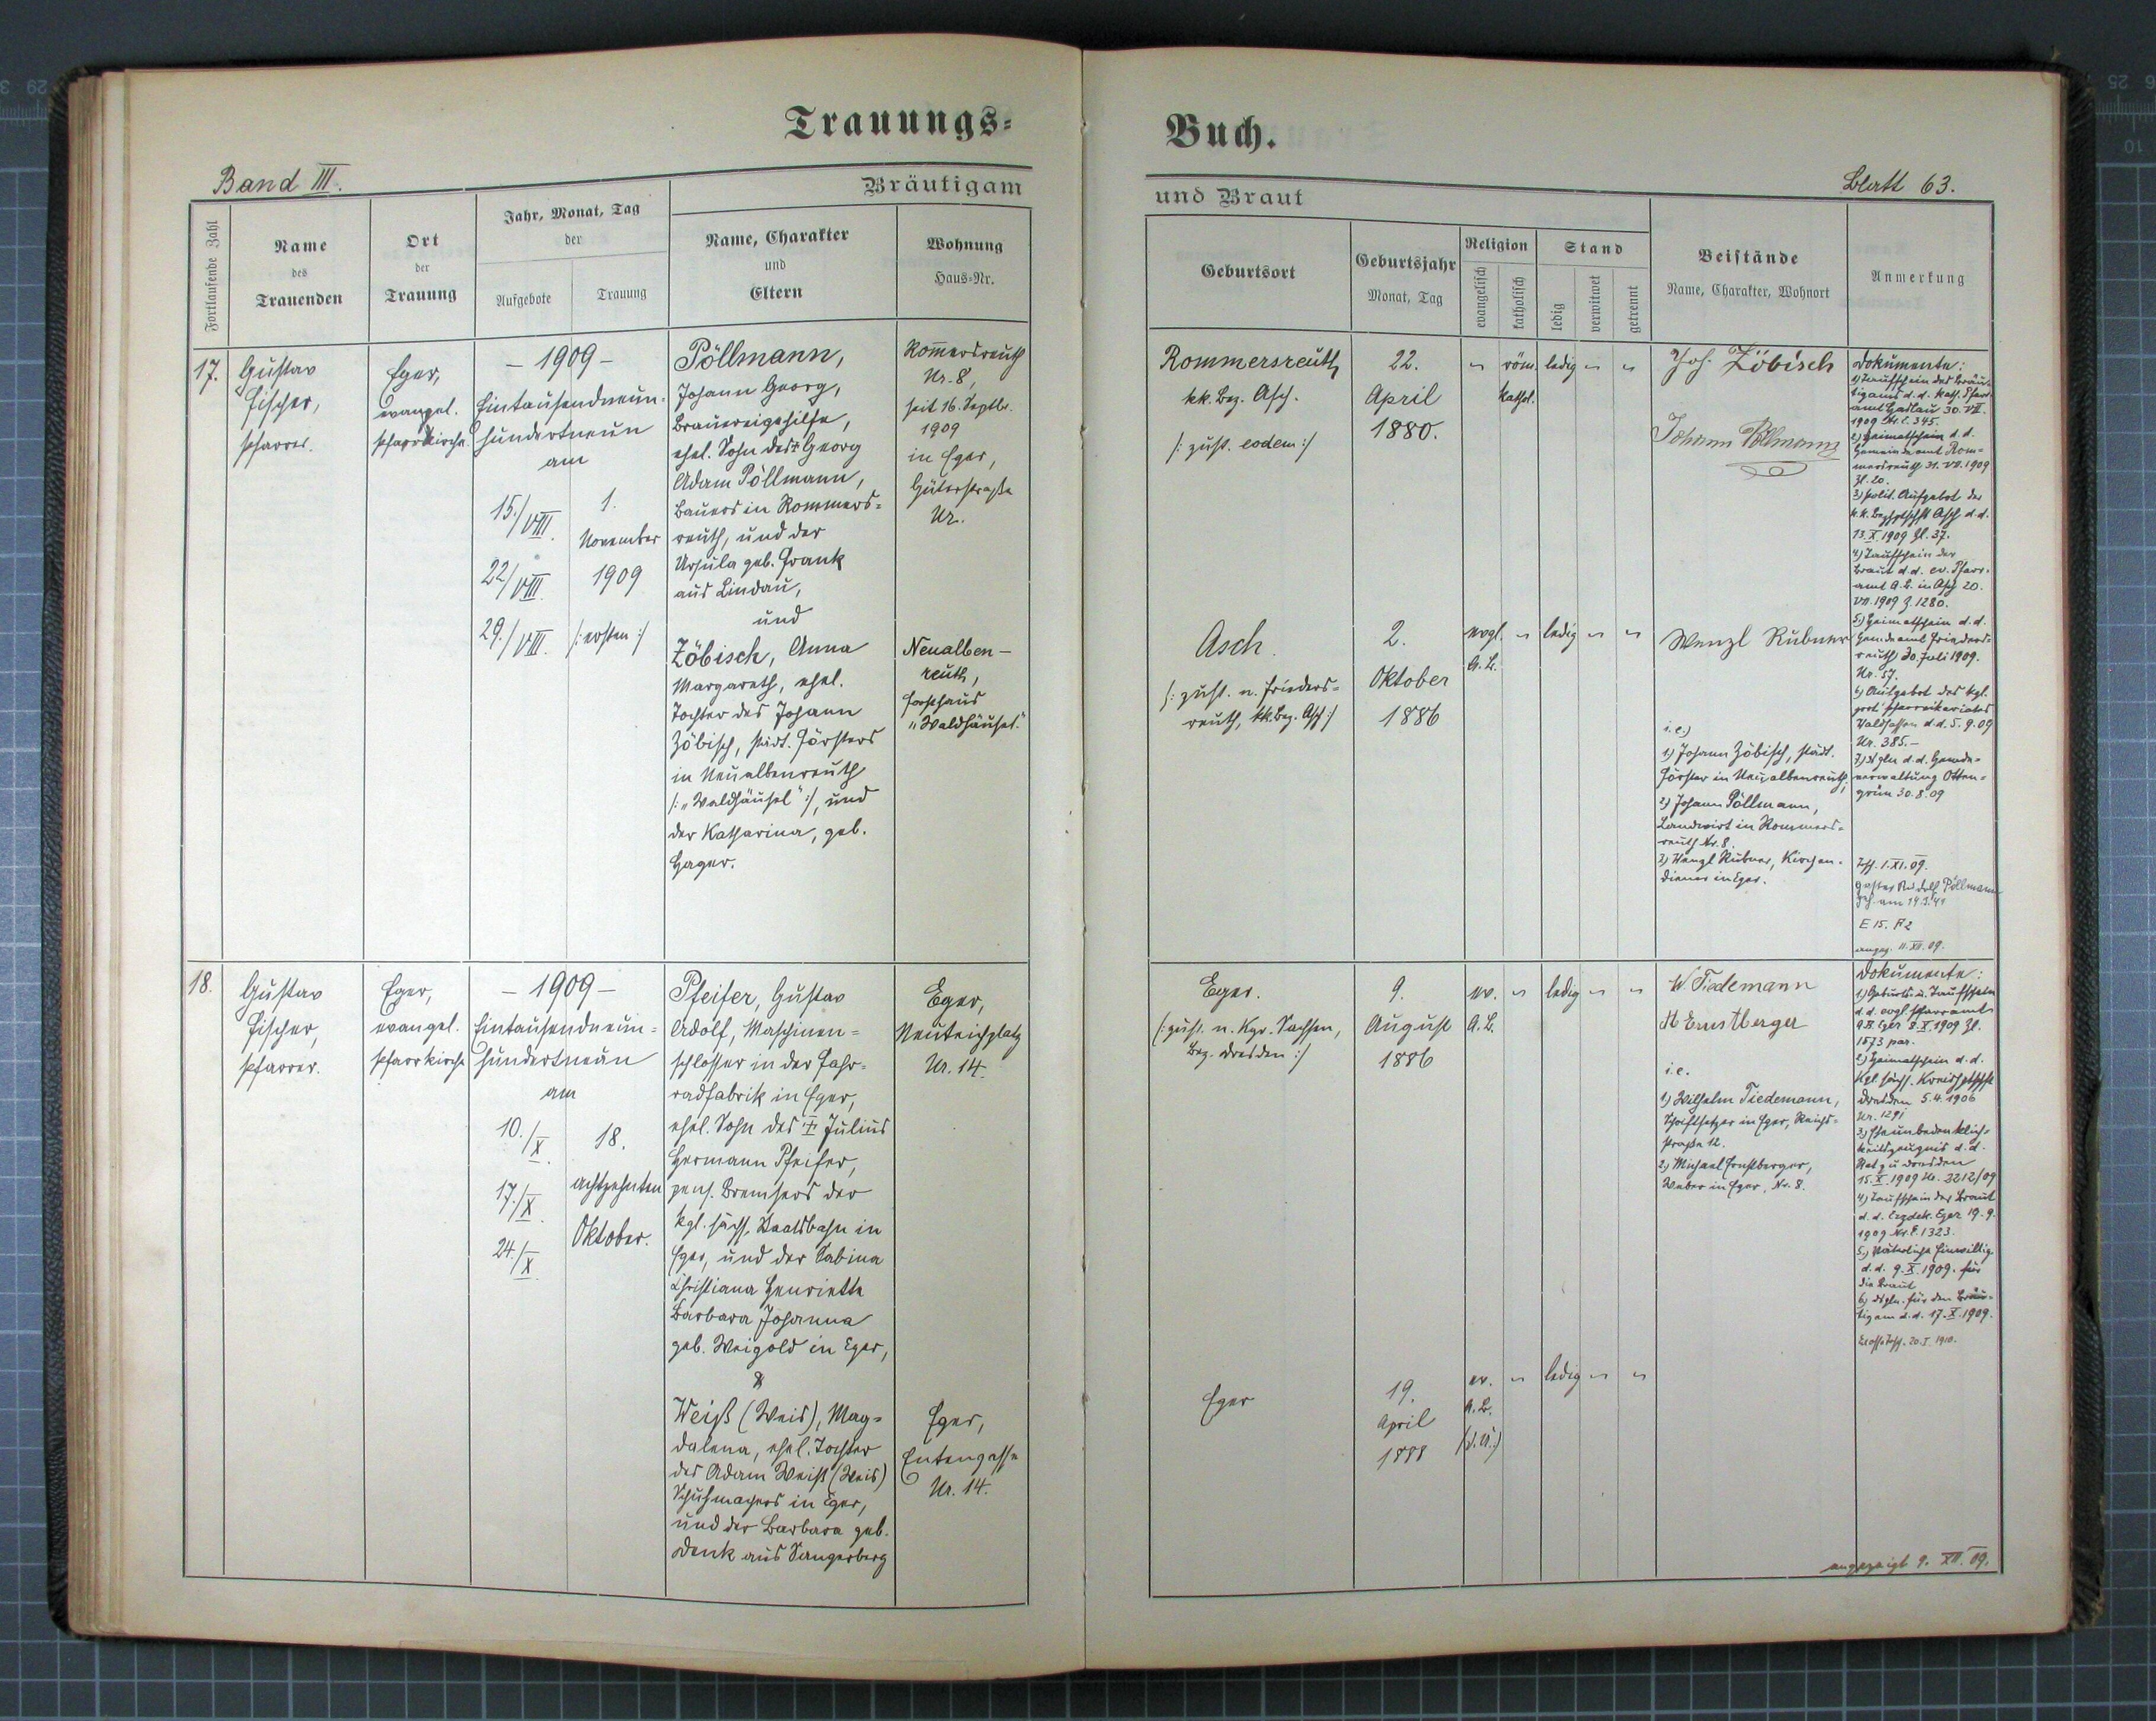 Trauungs=
Band III.
Bräutigam
Fortlaufende Zahl
Name
des
Trauenden
Ort
der
Trauung
Jahr, Monat, Tag
der
Aufgebote
Trauung
Name, Charakter
und
Eltern
Wohnung
Haus=Nr.
17.
Gustav
Fischer,
Pfarrer.
Eger,
evangel.
Pfarrkirche
– 1909 –
Eintausendneun-
hundertneun
am
15./VIII.
22/VIII.
29./VIII.
1.
November
1909
/: ersten :/
Pöllmann,
Johann Georg,
Brauereigehilfe,
ehel. Sohn des † Georg
Adam Pöllmann,
Bauers in Rommers=
reuth, und der
Ursula geb. Frank
aus Lindau,
und
Zöbisch, Anna
Margareth, ehel.
Tochter des Johann
Zöbisch, städt. Försters
in Neualbenreuth
/: „Waldhäusel“ :/, und
der Katharina, geb.
Hager.
Rom̅ersreuth
Nr. 8,
seit 16. Septbr.
1909
in Eger,
Güterstraße
Nr.
Neualben–
reuth,
Forsthaus
„Waldhäusel.“
18.
Gustav
Fischer,
Pfarrer.
Eger,
evangel.
Pfarrkirche
– 1909 –
Eintausendneun=
hundertneun
am
10./X.
17./X.
24./X.
18.
achtzehnten
Oktober.
Pfeifer, Gustav
Adolf, Maschinen=
schlosser in der Fahr=
radfabrik in Eger,
ehel. Sohn des † Julius
Hermann Pfeifer,
pens. Bremsers der
kgl. sächs. Staatsbahn in
Eger, und der Sabina
Christiana Henriette
Barbara Johanna
geb. Weigold in Eger,
&
Weiß (Weis), Mag=
dalena, ehel. Tochter
des Adam Weiß (Weis)
Schuhmachers in Eger,
und der Barbara geb.
Denk aus Sangerberg
Eger,
Neuteichplatz
Nr. 14.
Eger,
Entengasse
Nr. 14.
Buch.
Blatt 63.
und Braut
Geburtsort
Geburtsjahr
Monat, Tag
Religion
evangelisch
katholisch
Stand
ledig
verwitwet
getrennt
Beistände
Name, Charakter, Wohnort
Anmerkung
Rommersreuth
kk. Bez. Asch.
/: zust. eodem :/
22.
April
1880.
„ röm. ledig „ „
kathol.
Joh. Zöbisch
Johann Pöllmann
Asch.
/: zust. n. Frieders=
reuth, kk. Bez. Asch :/
2.
Oktober
1886
evgl. „ ledig „ „
A. B.
Wenzl Rubner
i. e.)
1.) Johann Zöbisch, städt.
Förster in Neualbenreuth;
2) Johann Pöllmann,
Landwirt in Rommers=
reuth Nr. 8.
3) Wenzl Rubner, Kirchen-
diener in Eger.
Dokumente:
1) Taufschein des Bräu-
tigams d. d. kath. Pfarr-
amt Haslau 30. VII.
1909 Nr. E. 345.
2.) Heimatschein d. d.
Gemeindeamt Rom=
mersreuth 31. VII. 1909
Zl. 20.
3.) polit. Aufgebot der
k. k. Bezhptschft Asch d. d.
13. X. 1909 Zl. 37.
4) Taufschein der
Braut d. d. ev. Pfarr-
amt A. B. in Asch 20.
VII. 1909 Z. 1280.
5.) Heimatschein d. d.
Gemdeamt Frieders=
reuth 30. Juli 1909.
Nr. 57.
6.) Aufgebot des kgl.
prot. Pfarrvikariates
Waldsassen d. d. 5. 9. 09
Nr. 385.–
7.) dgln d. d. Gemde=
verwaltung Otten=
grün 30. 8. 09
1. XI. 09.
Rudolf Pöllmann
am 14.3.41
E 15. F 2
angez. 11. XII. 09.
Eger.
/: zust. n. Kgr. Sachsen,
Bez. Dresden :/
9.
August
1886
ev. „ ledig „ „
A. B.
W Tiedemann
M Ernstberger
i. e.
1.) Wilhelm Tiedemann,
Schriftsetzer in Eger, Reichs=
straße 12.
2.) Michael Ernstberger,
Weber in Eger, Nr. 8.
Eger
19.
April
1888
ev. „ ledig „ „
A. B.
Dokumente:
1.) Geburts- u. Taufschein
d. d. evgl. Pfarramt
A. B. Eger 8. X. 1909 Zl.
1573 par.
2.) Heimatschein d. d.
Kgl. sächs. Kreishptschft
Dresden 5. 4. 1906
Nr. 1291
3.) Eheunbedenklich-
keitszeugnis d. d.
Rat zu Dresden
15. X. 1909 Nr. 3212/09
4.) Taufschein der Braut
d. d. Erzdek. Eger 19. 9.
1909 Nr. E. 1323.
5.) Väterliche Einwillig
d. d. 9. X. 1909. für
die Braut
6.) dsgln. für den Bräu=
tigam d. d. 17. X. 1909.
20. I. 1910.
angezeigt 9. XII. 09.